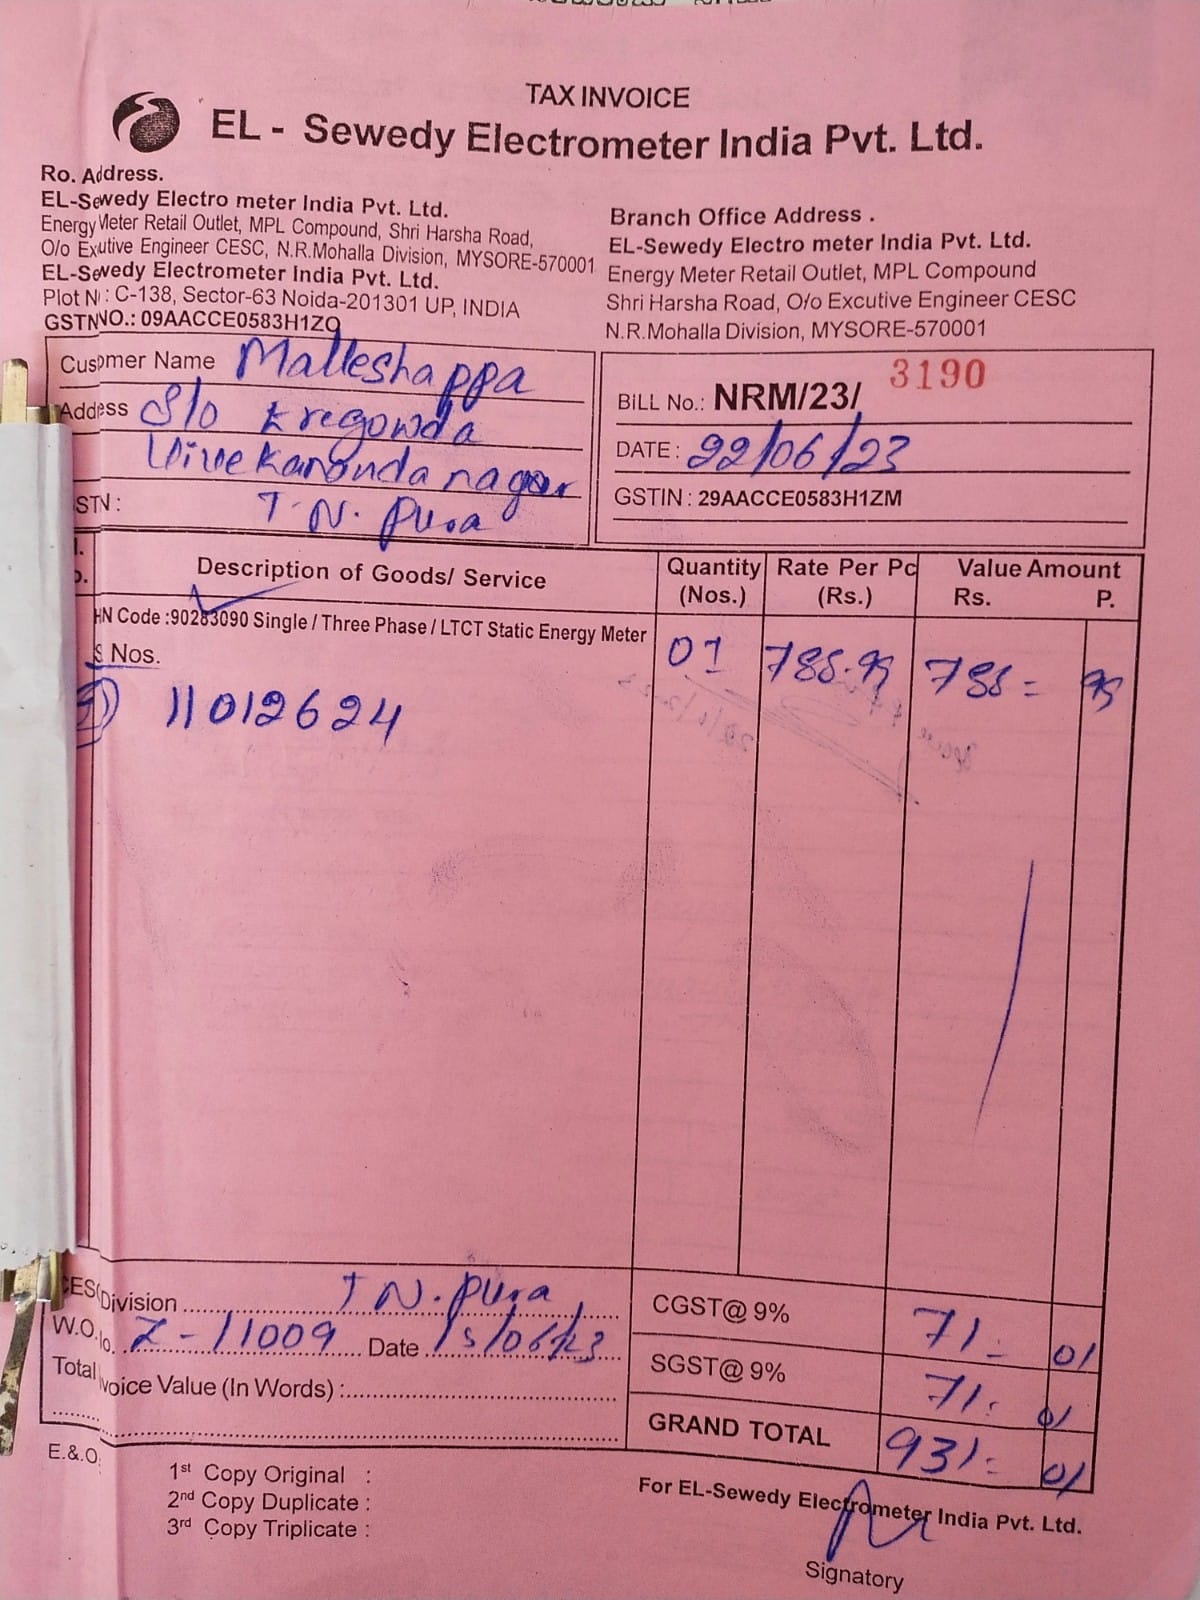 TAX INVOICE
EL - Sewedy Electrometer India Pvt. Ltd.
Ro. Address.
EL-Sewedy Electro meter India Pvt. Ltd.
Energy Meter Retail Outlet, MPL Compound, Shri Harsha Road,
O/o Exutive Engineer CESC, N.R.Mohalla Division, MYSORE-570001
EL-Sewedy Electrometer India Pvt. Ltd.
Plot N : C-138, Sector-63 Noida-201301 UP, INDIA
GSTNNO.: 09AACCE0583H1ZO
Branch Office Address .
EL-Sewedy Electro meter India Pvt. Ltd.
Energy Meter Retail Outlet, MPL Compound
Shri Harsha Road, O/o Excutive Engineer CESC
N.R.Mohalla Division, MYSORE-570001
Cusomer Name Malleshappa
Address S/o Kregowda
Vivekanandanagar
STN : T.N. Pura
BiLL No.: NRM/23/ 3190
DATE : 22/06/23
GSTIN : 29AACCE0583H1ZM
Description of Goods/ Service Quantity (Nos.) Rate Per Pc (Rs.) Value Amount Rs. P.
HN Code :90283090 Single / Three Phase / LTCT Static Energy Meter
S Nos. 01 788.99 788= 99
11012624
CESC Division T N. Pura
W.O. No. Z-11009 Date 15/06/23
Total Invoice Value (In Words) :
CGST@ 9% 71= 01
SGST@ 9% 71= 01
GRAND TOTAL 931= 01
E.&.O.
1st Copy Original :
2nd Copy Duplicate :
3rd Copy Triplicate :
For EL-Sewedy Electrometer India Pvt. Ltd.
Signatory